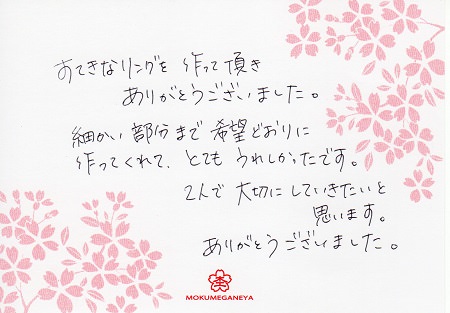 すてきなリングを作って頂き
ありがとうございました。
細かい部分まで希望どおりに
作ってくれて、とてもうれしかったです。
2人で大切にしていきたいと
思います。
ありがとうございました。
MOKUMEGANEYA